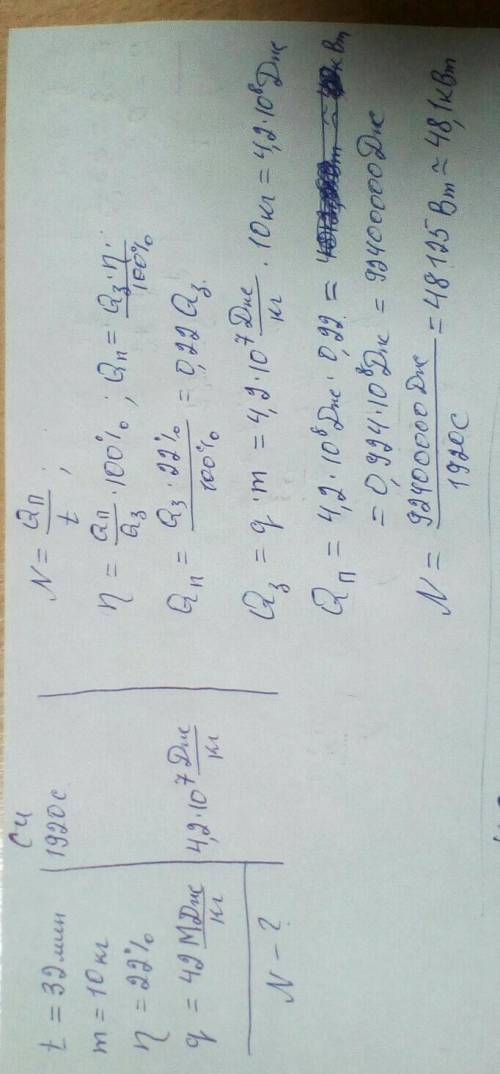 t = 32 мин
m = 10 кг
η = 22%
q = 42 МДж/кг
N – ?
СИ
1920 с
4,2·10⁷ Дж/кг
N = Qп/t ;
η = Qп/Qз · 100% ; Qп = Qз·η/100% ;
Qп = Qз·22%/100% = 0,22 Qз
Qз = q·m = 4,2·10⁷ Дж/кг · 10 кг = 4,2·10⁸ Дж
Qп = 4,2·10⁸ Дж · 0,22 =
= 0,924·10⁸ Дж = 92400000 Дж
N = 92400000 Дж/1920 с = 48125 Вт ≃ 48,1 кВт